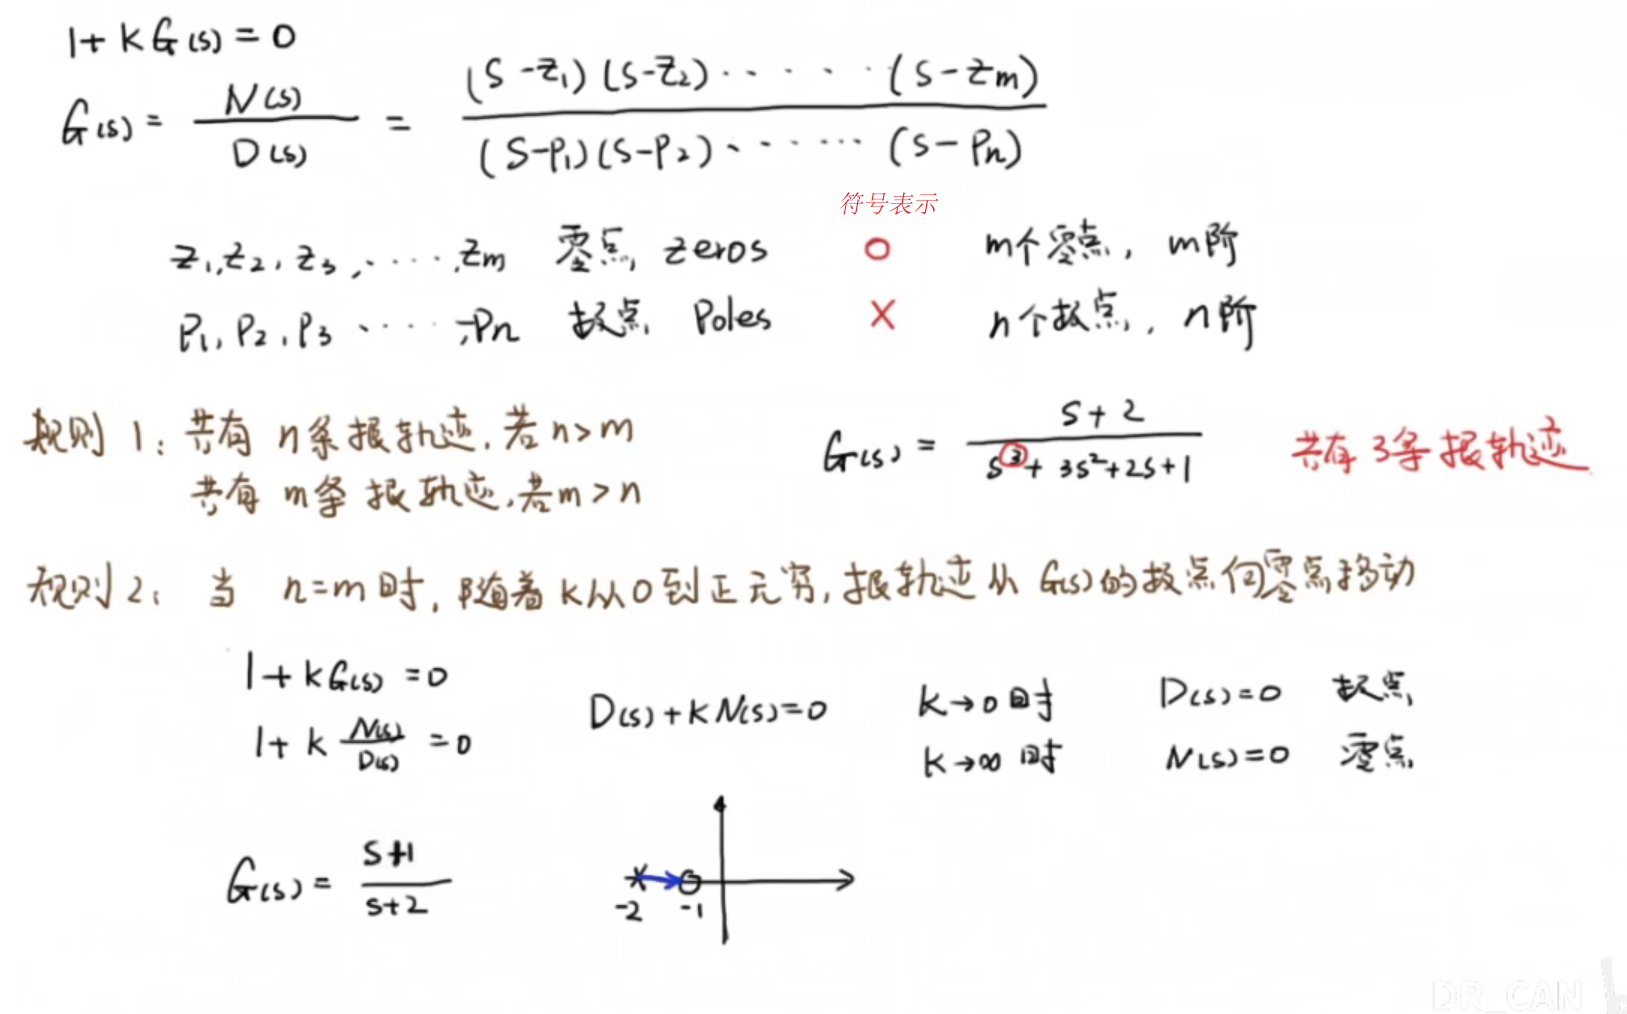 1+KG(s)=0
G(s) = N(s)/D(s) = (s-z₁)(s-z₂)······(s-zm)/(s-p₁)(s-p₂)······(s-pn)
符号表示
z₁,z₂,z₃,·····,zm 零点 zeros O m个零点, m阶
p₁,p₂,p₃·····,pn 极点 Poles X n个极点, n阶
规则1: 共有 n条根轨迹, 若n>m
共有 m条根轨迹, 若m>n
G(s) = s+2/s³+3s²+2s+1 共有3条根轨迹
规则2: 当 n=m时, 随着K从0到正无穷, 根轨迹从G(s)的极点向零点移动
1+KG(s)=0
1+K N(s)/D(s) =0
D(s)+KN(s)=0
K→0时 D(s)=0 极点
K→∞时 N(s)=0 零点
G(s) = s+1/s+2
-2 -1
DR_CAN